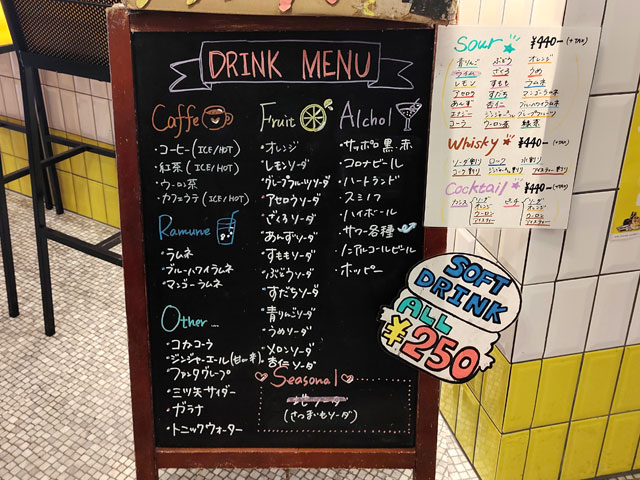 DRINK MENU
Caffe
・コーヒー(ICE/HOT)
・紅茶(ICE/HOT)
・ウーロン茶
・カフェラテ(ICE/HOT)
Ramune
・ラムネ
・ブルーハワイラムネ
・マンゴーラムネ
Other...
・コカコーラ
・ジンジャーエール(甘or辛)
・ファンタグレープ
・三ツ矢サイダー
・ガラナ
・トニックウォーター
Fruit
・オレンジ
・レモンソーダ
・グレープフルーツソーダ
・アセロラソーダ
・ざくろソーダ
・あんずソーダ
・すももソーダ
・ぶどうソーダ
・すだちソーダ
・青りんごソーダ
・うめソーダ
・メロンソーダ
・杏仁ソーダ
Seasonal
(さつまいもソーダ)
Alchol
・サッポロ黒・赤
・コロナビール
・ハートランド
・スミノフ
・ハイボール
・サワー各種
・ノンアルコールビール
・ホッピー
Sour ¥440-(+TAX)
青りんご ぶどう オレンジ
ライム ざくろ うめ
レモン すもも ラムネ
アセロラ すだち マンゴーラムネ
あんず 杏仁 ブルーハワイラムネ
エナジー ジンジャーエール グレープフルーツ
コーラ ウーロン茶 緑茶
Whisky ¥440-(+TAX)
ソーダ割り ロック 水割り
コーク割り ジンジャーエール割り アイスティー割り
Cocktail ¥440-(+TAX)
カシス ソーダ ピーチ ソーダ
オレンジ オレンジ
ウーロン ウーロン
アイスティー アイスティー
SOFT
DRINK
ALL
¥250